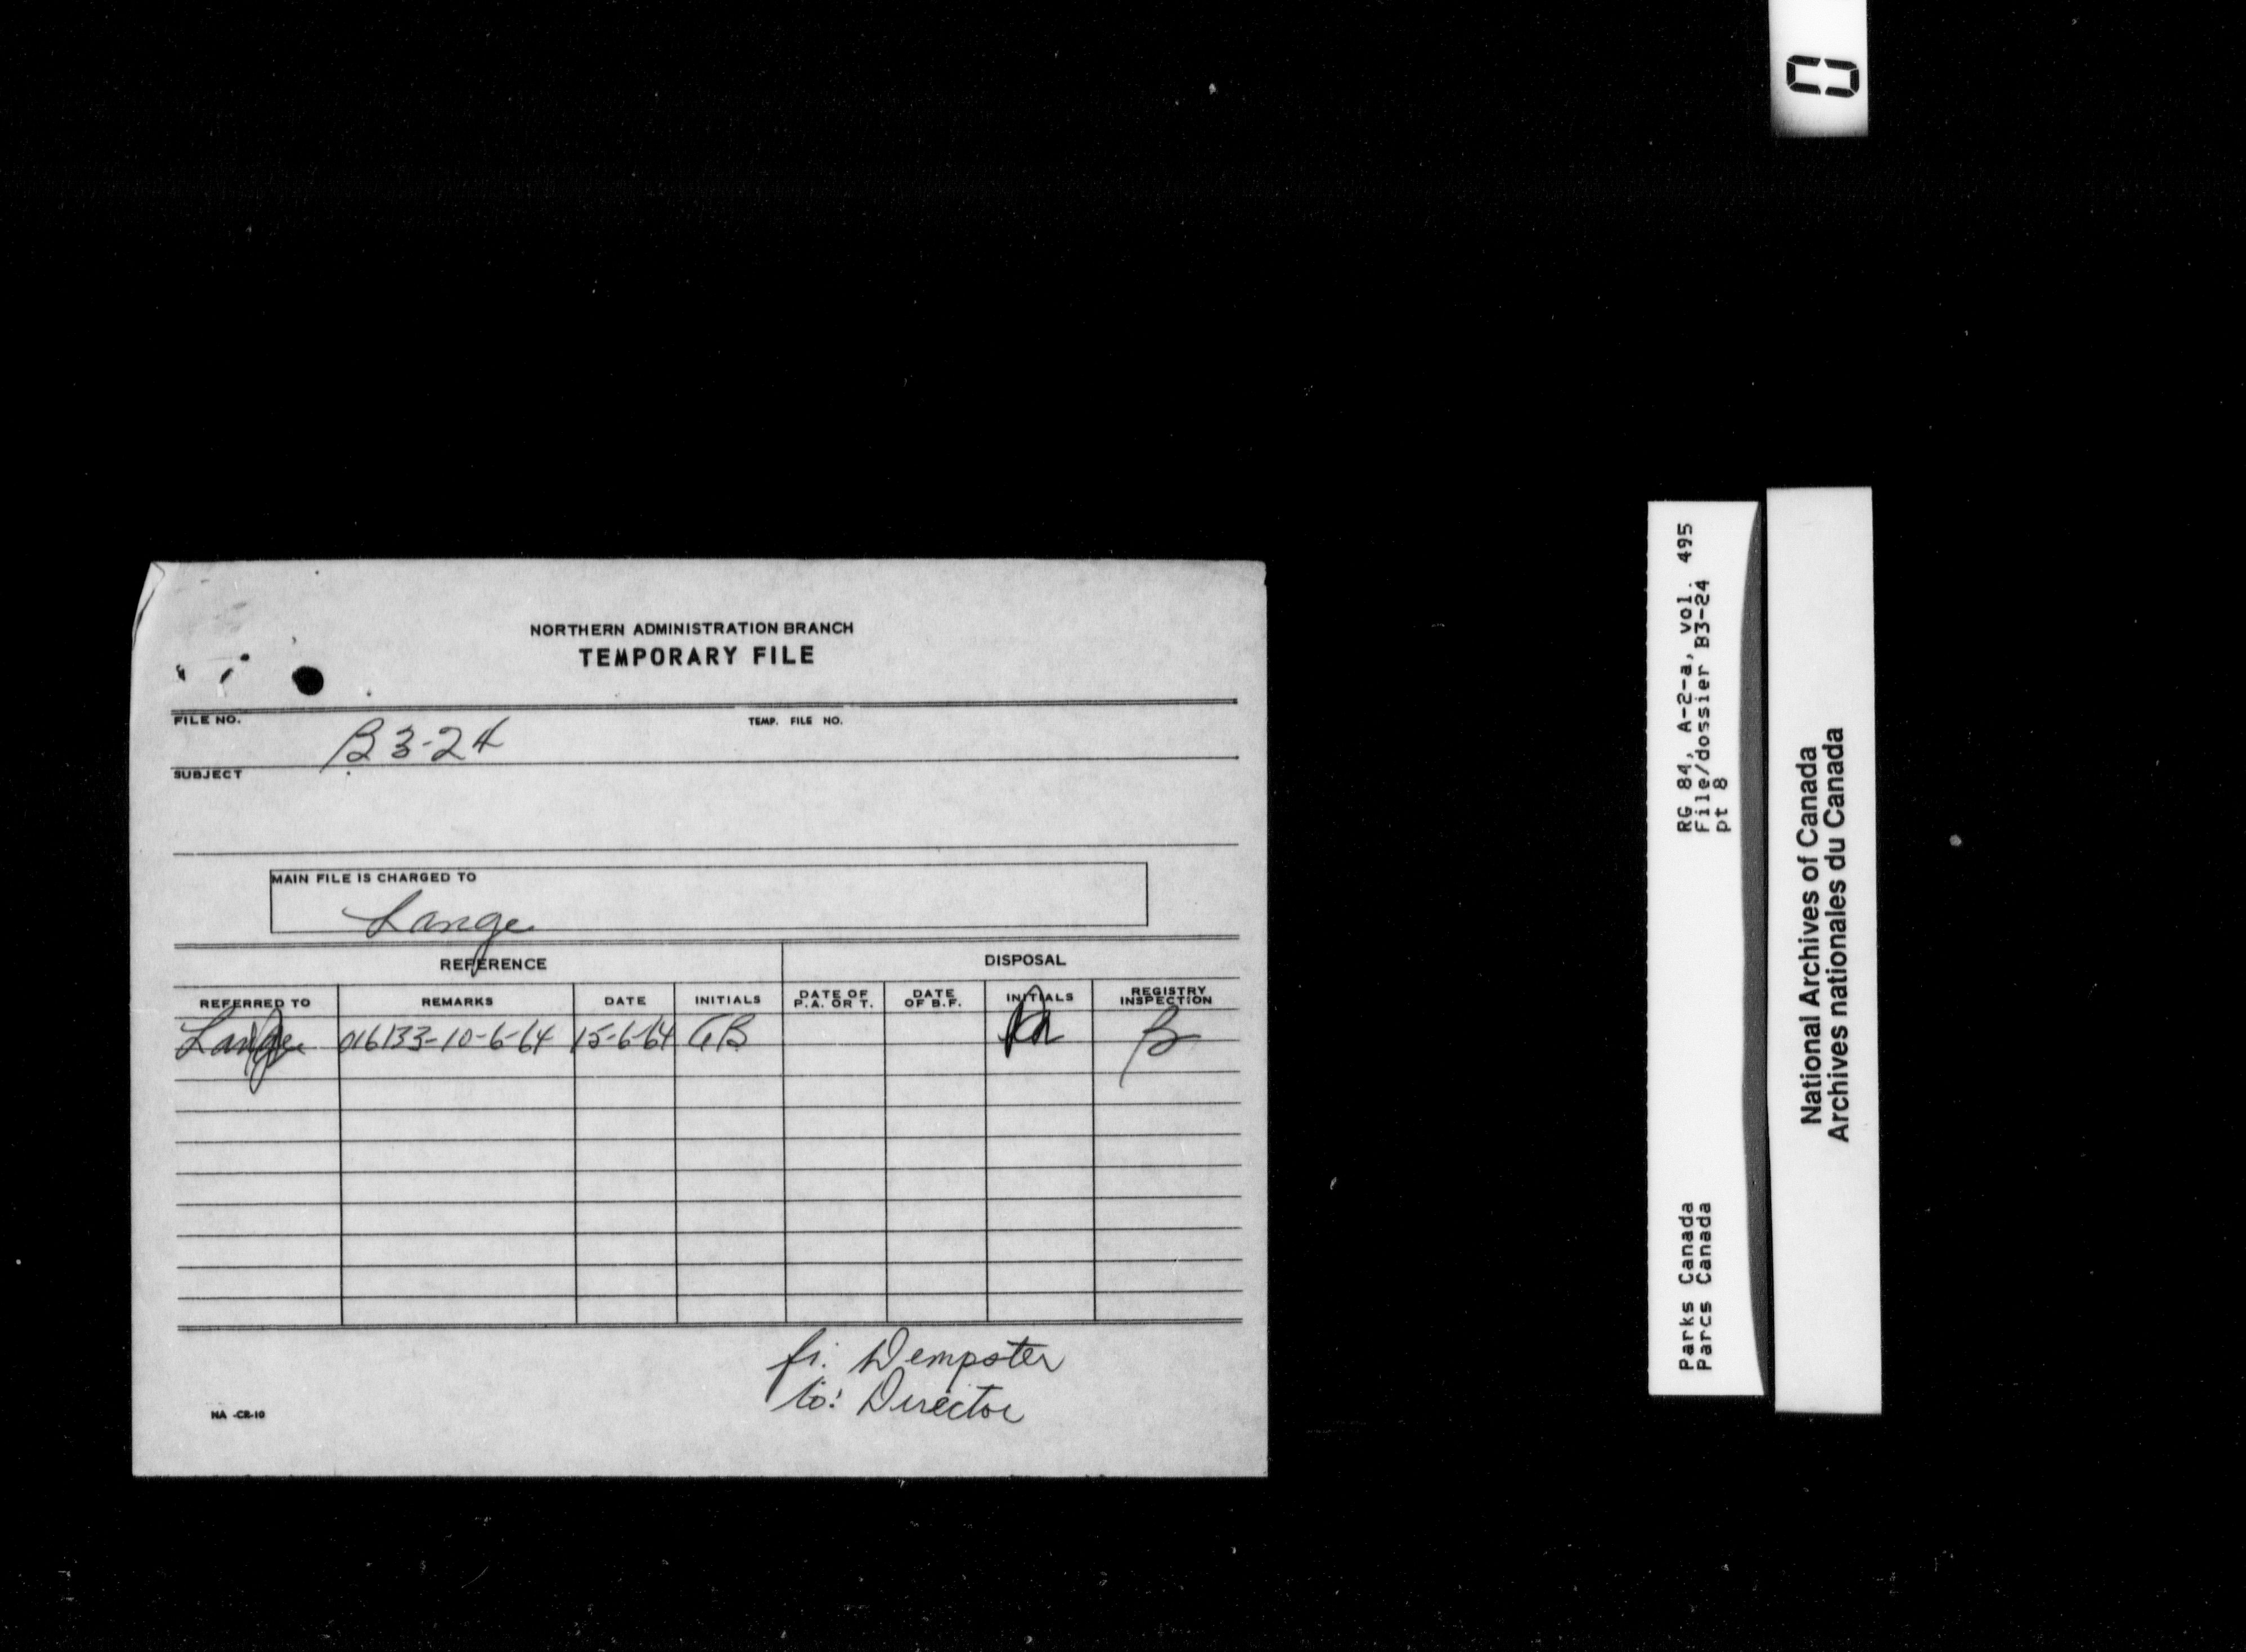 NORTHERN ADMINISTRATION BRANCH
TEMPORARY FILE
FILE NO. B3-24 TEMP. FILE NO.
SUBJECT
MAIN FILE IS CHARGED TO
Lange
REFERENCE DISPOSAL
REFERRED TO REMARKS DATE INITIALS DATE OF P.A. OR T. DATE OF B.F. INITIALS REGISTRY INSPECTION
Lange 016133-10-6-64 15-6-64 GB B
fr: Dempster
to: Director
NA -CR-10
0
RG 84, A-2-a, vol. 495
File/dossier B3-24
pt 8
Parks Canada
Parcs Canada
National Archives of Canada
Archives nationales du Canada